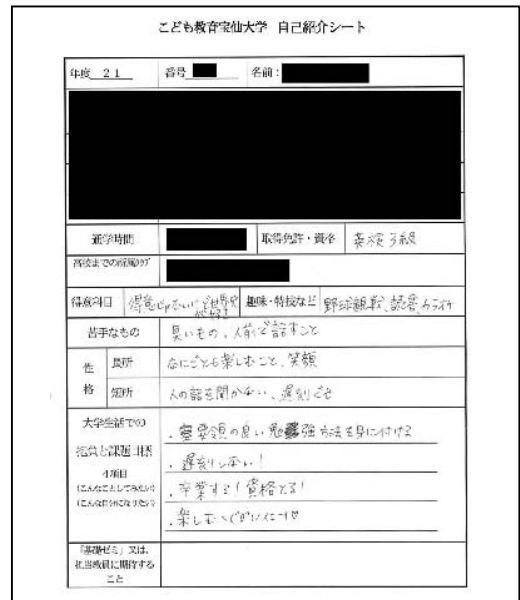 こども教育宝仙大学 自己紹介シート
年度 21 番号 名前：
通学時間 取得免許・資格 漢検3級
高校までの所属クラブ
得意科目 得意じゃないけど世界史が好き 趣味・特技など 野球観戦、読書、カラオケ
苦手なもの 臭いもの、人前で話すこと
性格 長所 なにごとも楽しむこと、笑顔
短所 人の話を聞かない、遅刻ぐせ
大学生活での
抱負と課題目標
4項目
(こんなことしてみたい)
(こんな自分になりたい)
・要領の良い勉強方法を身に付ける
・遅刻しない！
・卒業する！資格とる！
・楽しむ
「基礎ゼミ」又は、
担当教員に期待する
こと